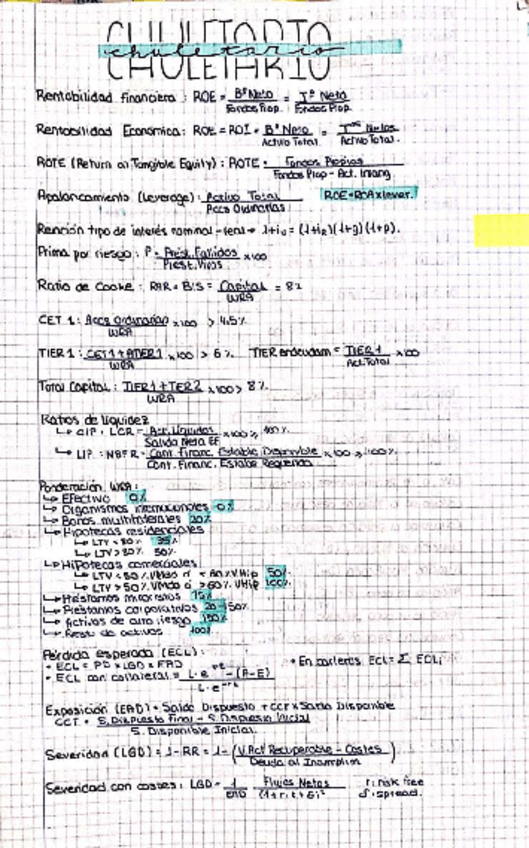 CHULETARIO
chuletario
CHULETARIO
Rentabilidad financiera : ROE = Bº Neto / Fondos Prop. = Tº Neto / Fondos Prop.
Rentabilidad Económica: ROE = ROI = Bº Neto / Activo Total = Netos / Activo Total.
ROTE (Return on Tangible Equity) : ROTE = Fondos Propios / Fondos Prop - Act. Intang
Apalancamiento (Leverage) : Activo Total / Accs Ordinarias ROE=ROAxlever.
tipo de interés nominal-real → 1+iN = (1+iR)(1+g)(1+p).
Prima por riesgo : P = Prést. Fallidos / Prést. Vivos x100
Ratio de Cooke : RAR = BIS = Capital / WRA = 8%
CET 1 : Accs Ordinarias / WRA x100 > 4.5%
TIER 1 : CET1+ATIER1 / WRA x100 > 6% TIER endeudam = TIER1 / Act. Total x100
Total Capital : TIER1+TIER2 / WRA x100 > 8%.
Ratios de liquidez
↳ C/P : LCR = Act. Líquidos / Salida Neta EF x100 ≥ 100%
↳ L/P : NSFR = Cant. Financ. Estable Disponible / Cant. Financ. Estable Requerida x100 ≥ 100%.
Ponderación WRA :
↳ Efectivo 0%
↳ Organismos internacionales 0%
↳ Bonos multilaterales 20%
↳ Hipotecas residenciales
↳ LTV < 80% 35%
↳ LTV > 80% 50%
↳ Hipotecas comerciales
↳ LTV < 50% VMdo ó < 60% VHip 50%
↳ LTV < 50% VMdo ó > 60% VHip 100%
↳ Préstamos minoristas 75%
↳ Préstamos corporativos 20-150%
↳ Activos de alto riesgo 150%
↳ Resto de activos 100%
Pérdida esperada (ECL) :
• ECL = PD x LGD x EAD • En carteras ECL = Σ ECLi
• ECL con collateral = L·e - (A-E) / L·e
Exposición (EAD) = Saldo Dispuesto + CCF x Saldo Disponible
CCF = S. Dispuesto Final - S. Dispuesto Inicial / S. Disponible Inicial.
Severidad (LGD) = 1 - RR = 1 - (V.Act Recuperable - Costes / Deuda al Incumplim)
Severidad con costes : LGD = 1 / EAD Flujos Netos / (1+r+δ) r: risk free
δ: spread.